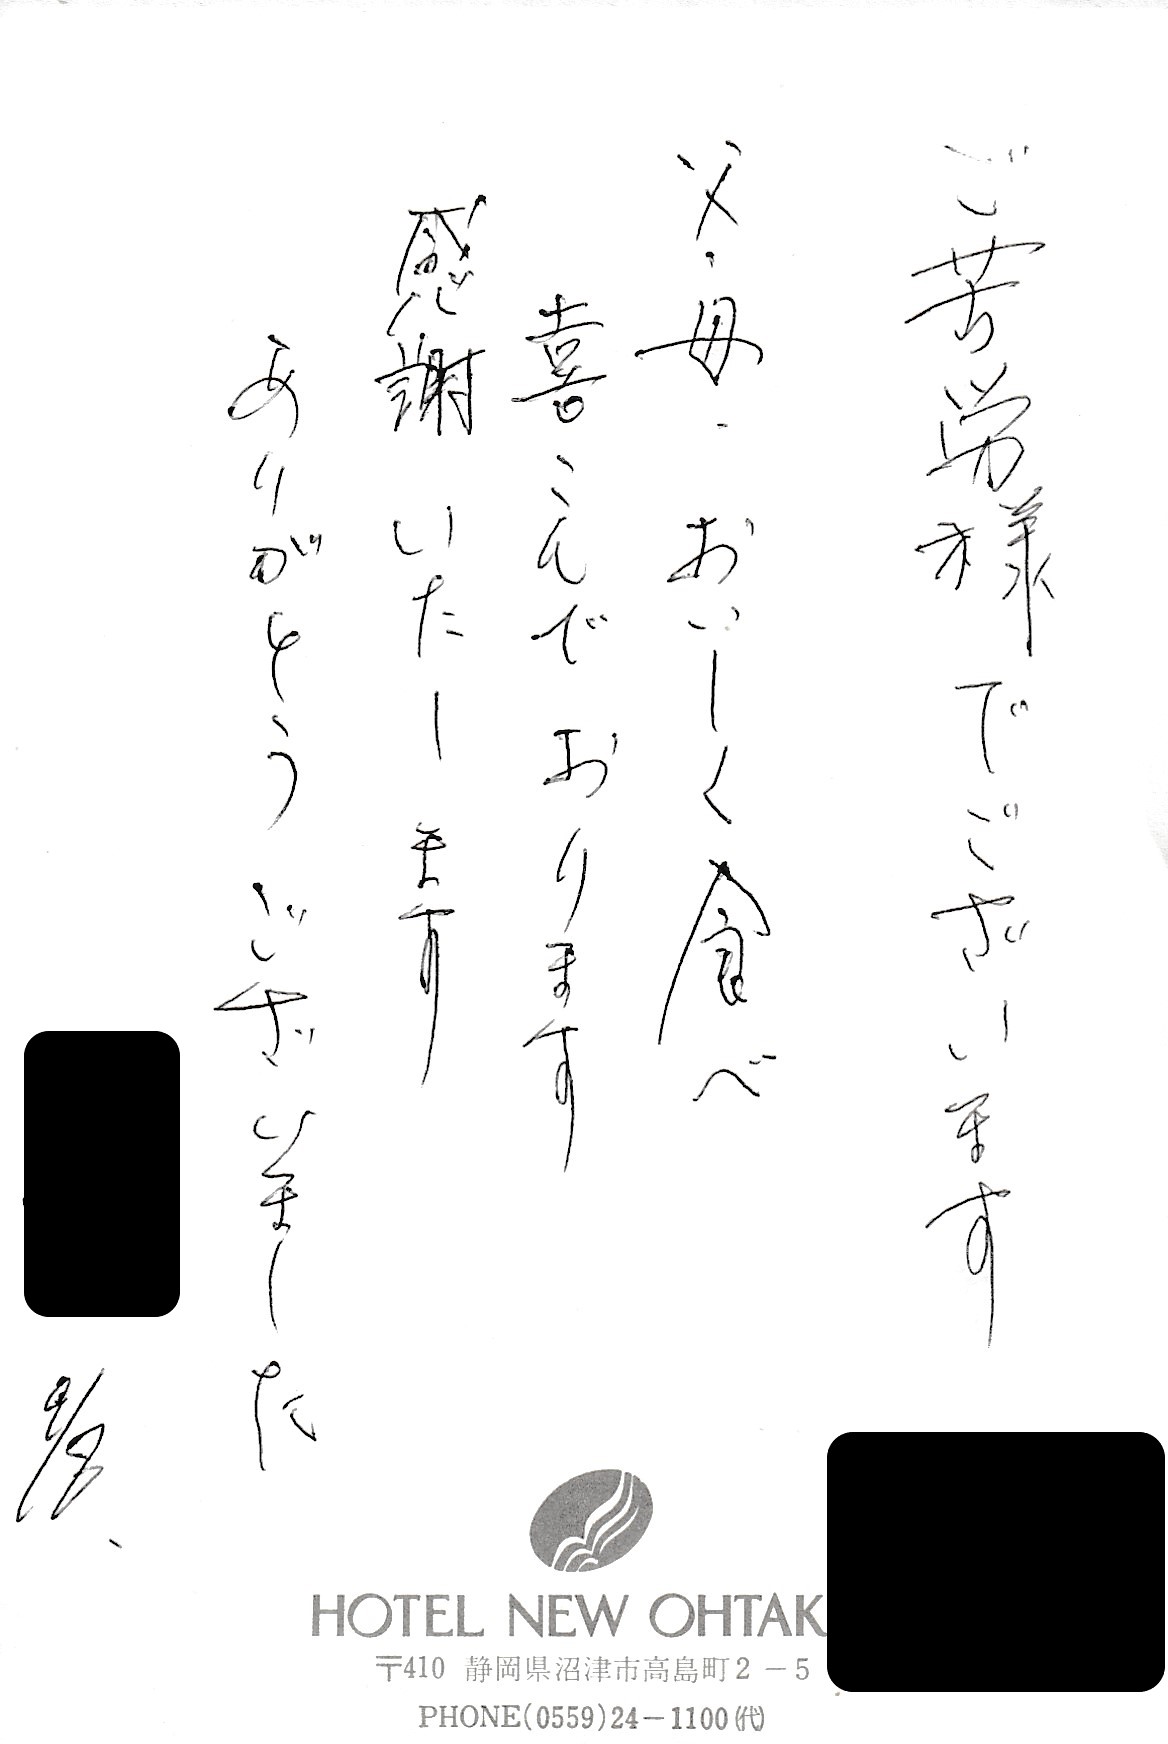 ご苦労様でございます
父・母、おいしく食べ
喜こんでおります
感謝いたします
ありがとうございました
HOTEL NEW OHTAK
〒410 静岡県沼津市高島町2－5
PHONE(0559)24－1100(代)